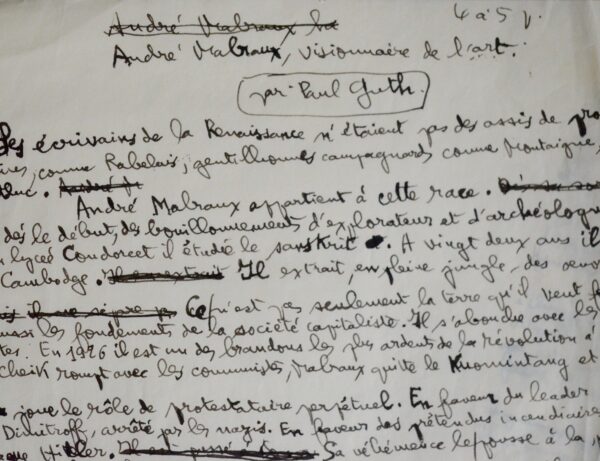 André Malraux
4 à 5 p.
André Malraux, visionnaire de l'art.
par Paul Guth.
Les écrivains de la Renaissance n'étaient pas des assis de pro
ires, comme Rabelais, gentilhommes campagnards comme Montaigne,
luc.
André Malraux appartient à cette race.
dès le début, des bouillonnements d'explorateur et d'archéologue
lycée Condorcet il étudie le sanskrit. A vingt deux ans il
Cambodge. Il extrait, en pleine jungle, des
Ce n'est pas seulement la terre qu'il veut f
ussi les fondements de la société capitaliste. Il s'abouche avec les
tes. En 1926 il est un des brandons les plus ardents de la révolution à
cheik rompt avec les communistes, Malraux quitte le Kuomintang et
joue le rôle de protestataire perpétuel. En faveur du leader
Dimitroff, arrêté par les nazis. En faveur des prétendus incendiaires
que Hitler. Sa véhémence le pousse à la